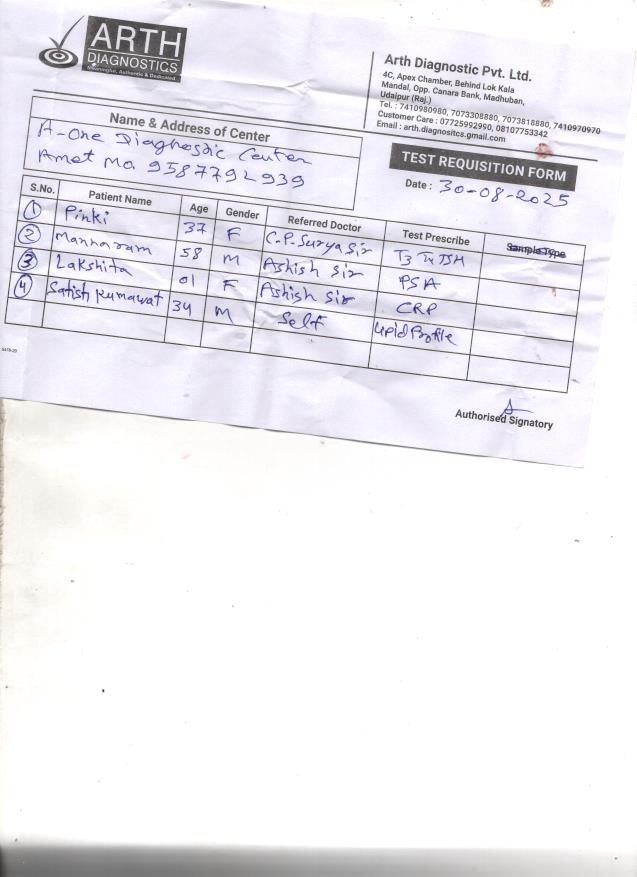 ARTH
DIAGNOSTICS
Meaningful, Authentic & Dedicated.
Arth Diagnostic Pvt. Ltd.
4C, Apex Chamber, Behind Lok Kala
Mandal, Opp. Canara Bank, Madhuban,
Udaipur (Raj.)
Tel. : 7410980980, 7073308880, 7073818880, 7410970970
Customer Care : 07725992990, 08107753342
Email : arth.diagnositcs.gmail.com
Name & Address of Center
A-One Diagnostic Center
Amet Mo. 9587792939
TEST REQUISITION FORM
Date : 30-08-2025
S.No. Patient Name Age Gender Referred Doctor Test Prescribe Sample Type
1 Pinki 37 F C.P. Surya Sir T3 T4 TSH
2 Mannaram 58 M Ashish Sir PSA
3 Lakshita 01 F Ashish Sir CRP
4 Satish Kumawat 34 M Self Lipid Profile
Authorised Signatory